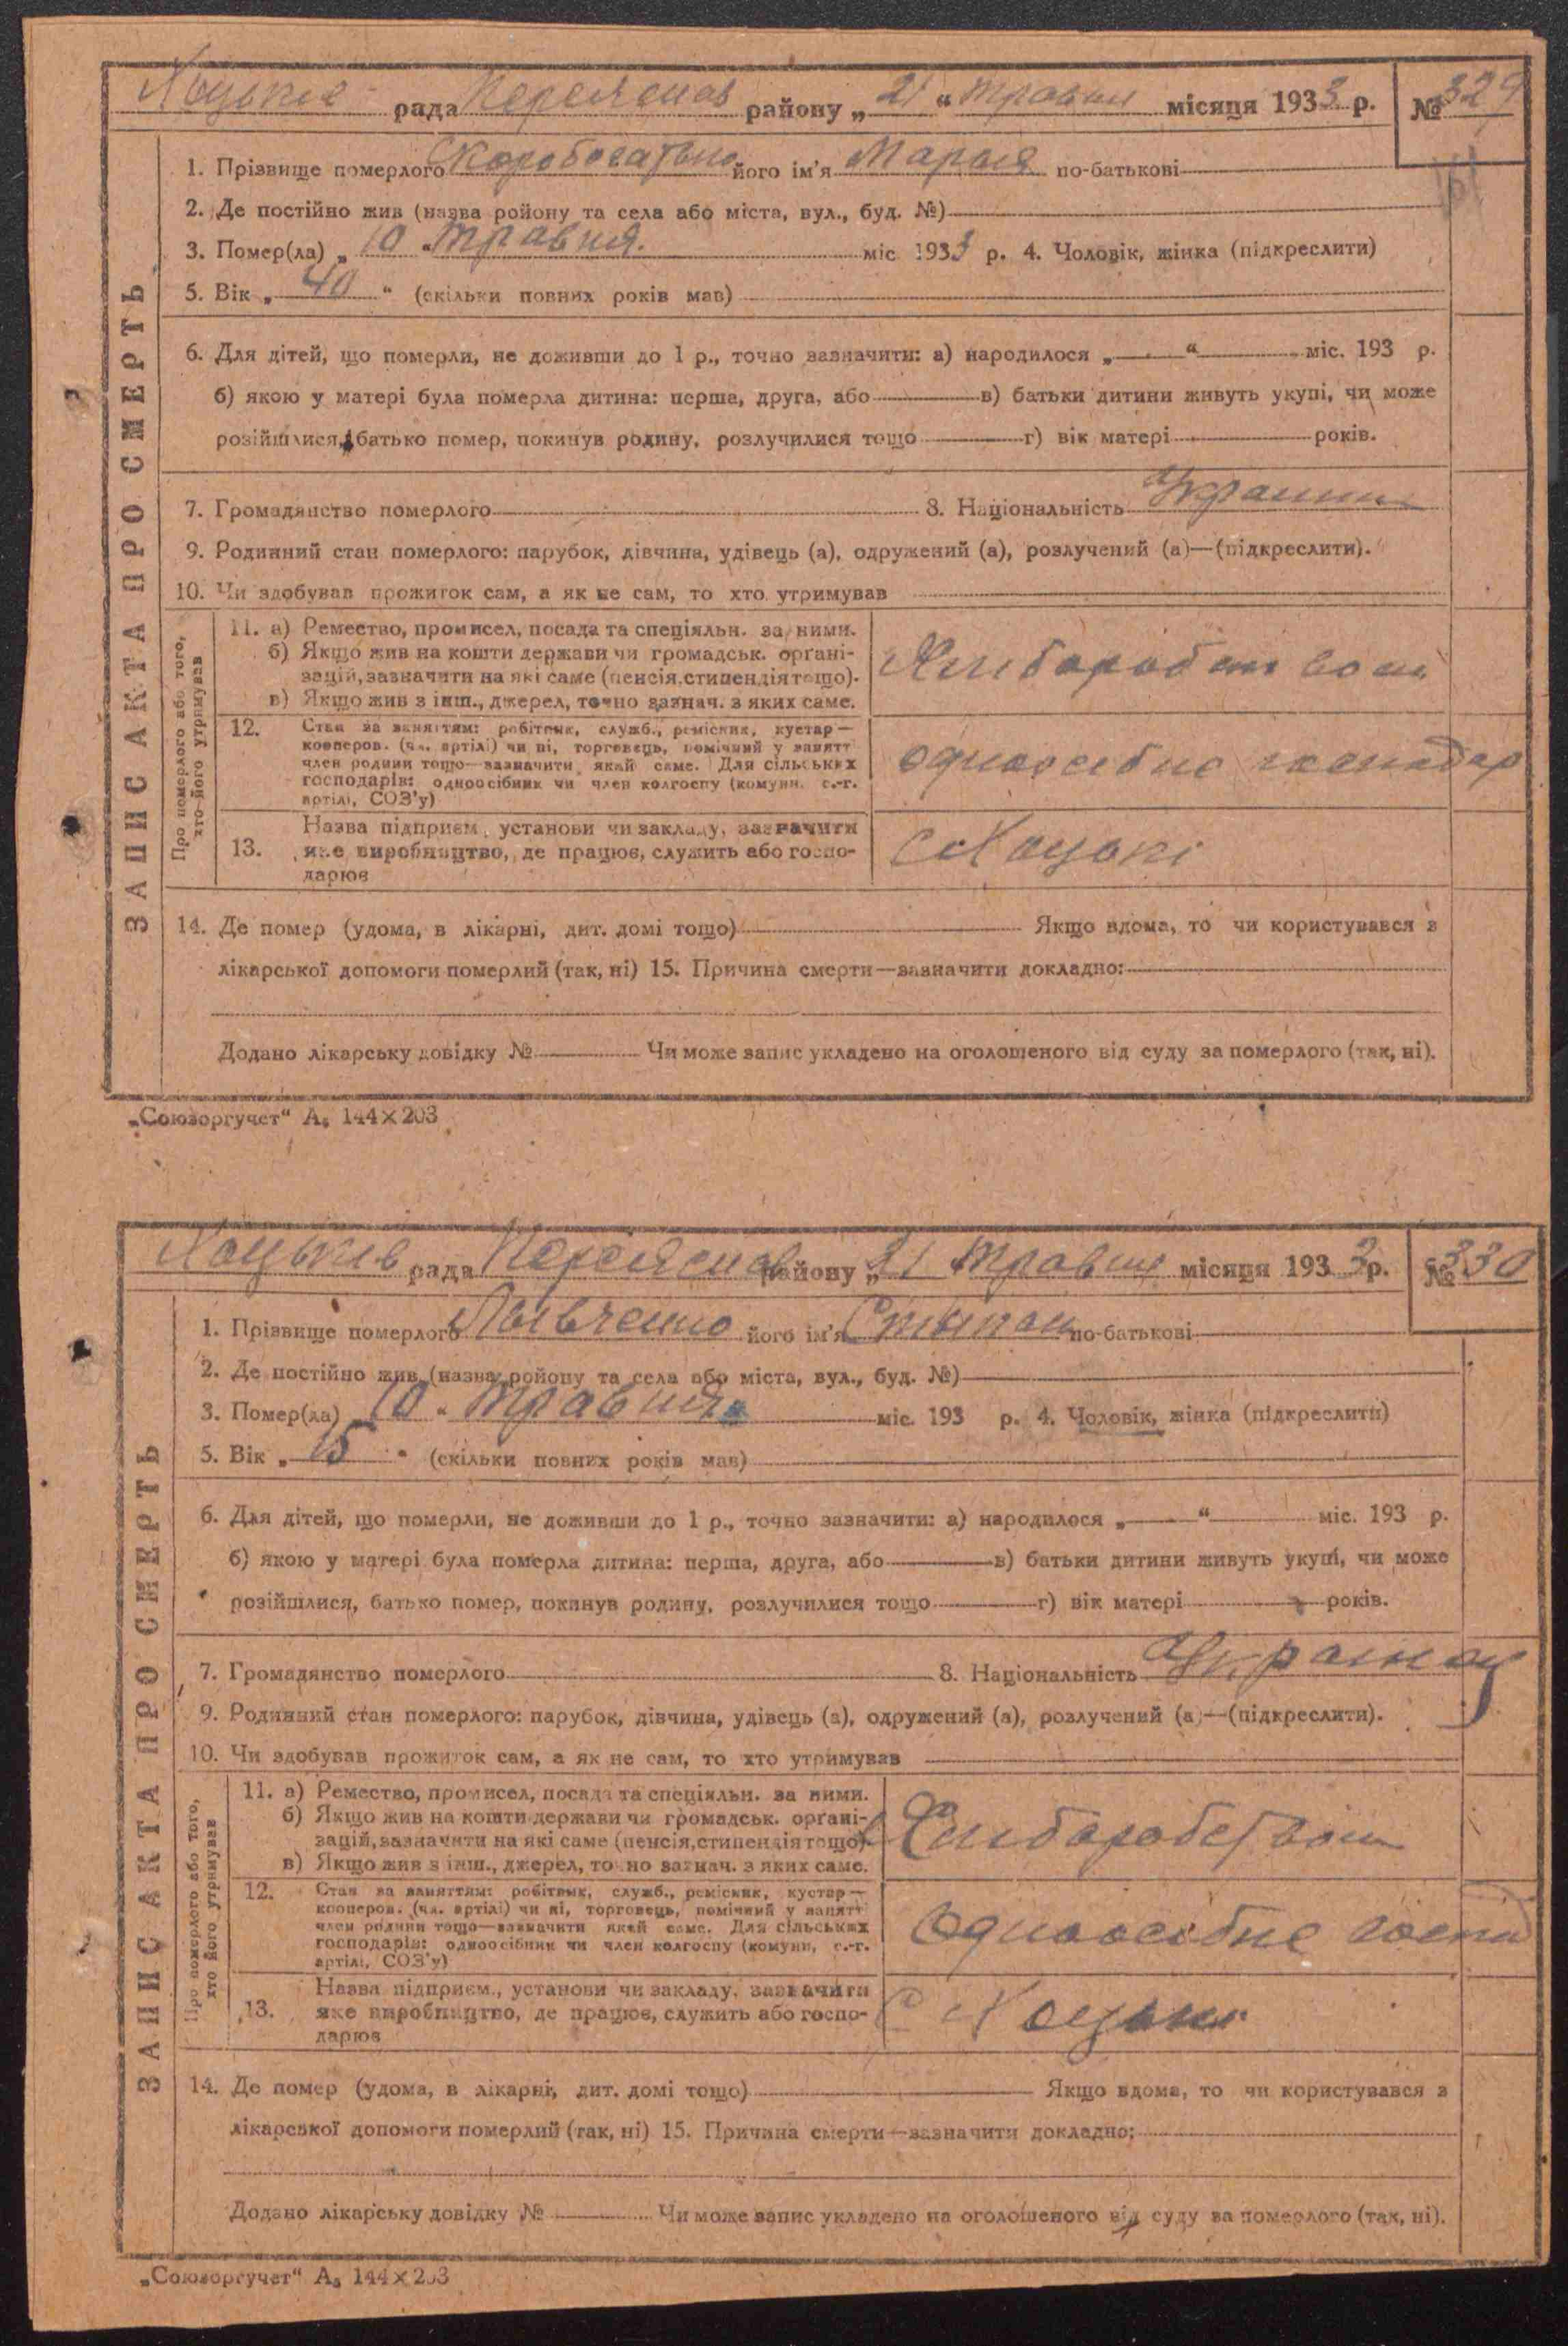 Хоцьків рада Переяслав району „21“ травня місяця 1933 р. № 329
1. Прізвище померлого його ім'я Марыя по-батькові
2. Де постійно жив (назва ройону та села або міста, вул., буд. №)
3. Помер(ла) „10“ травня. міс 1933 р. 4. Чоловік, жінка (підкреслити)
5. Вік „40“ (скільки повних років мав)
6. Для дітей, що померли, не доживши до 1 р., точно зазначити: а) народилося „ “ міс. 193 р.
б) якою у матері була померла дитина: перша, друга, або в) батьки дитини живуть укупі, чи може
розійшлися, батько помер, покинув родину, розлучилися тощо г) вік матері років.
7. Громадянство померлого 8. Національність
9. Родинний стан померлого: парубок, дівчина, удівець (а), одружений (а), розлучений (а)—(підкреслити).
10. Чи здобував прожиток сам, а як не сам, то хто утримував
Про померлого або того,
хто його утримував
11. а) Ремество, промисел, посада та спеціяльн. за ними.
б) Якщо жив на кошти держави чи громадськ. орґані-
зацій, зазначити на які саме (пенсія, стипендія тощо).
в) Якщо жив з інш., джерел, точно зазнач. з яких саме.
12. Стан за заняттям: робітник, служб., ремісник, кустар—
кооперов. (чл. артілі) чи ні, торговець, помічний у занятт
член родини тощо—зазначити який саме. Для сільських
господарів: одноосібник чи член колгоспу (комуни, с.-г.
артілі, СОЗ'у)
одноосібне господар
13. Назва підприєм., установи чи закладу, зазначити
яке виробництво, де працює, служить або госпо-
дарює
с Хоцькі
14. Де помер (удома, в лікарні, дит. домі тощо) Якщо вдома, то чи користувався з
лікарської допомоги померлий (так, ні) 15. Причина смерти—зазначити докладно:
Додано лікарську довідку № Чи може запис укладено на оголошеного від суду за померлого (так, ні).
ЗАПИС АКТА ПРО СМЕРТЬ
„Союзоргучет“ А₅ 144×203
Хоцьків рада Переяслав району „21 травня місяця 1933 р. № 330
1. Прізвище померлого його ім'я по-батькові
2. Де постійно жив (назва ройону та села або міста, вул., буд. №)
3. Помер(ла) „10“ травня міс. 193 р. 4. Чоловік, жінка (підкреслити)
5. Вік „15“ (скільки повних років мав)
6. Для дітей, що померли, не доживши до 1 р., точно зазначити: а) народилося „ “ міс. 193 р.
б) якою у матері була померла дитина: перша, друга, або в) батьки дитини живуть укупі, чи може
розійшлися, батько помер, покинув родину, розлучилися тощо г) вік матері років.
7. Громадянство померлого 8. Національність
9. Родинний стан померлого: парубок, дівчина, удівець (а), одружений (а), розлучений (а)—(підкреслити).
10. Чи здобував прожиток сам, а як не сам, то хто утримував
Про померлого або того,
хто його утримував
11. а) Ремество, промисел, посада та спеціяльн. за ними.
б) Якщо жив на кошти держави чи громадськ. орґані-
зацій, зазначити на які саме (пенсія, стипендія тощо)
в) Якщо жив з інш., джерел, точно зазнач. з яких саме.
12. Стан за заняттям: робітник, служб., ремісник, кустар—
кооперов. (чл. артілі) чи ні, торговець, помічний у занятт
член родини тощо—зазначити який саме. Для сільських
господарів: одноосібник чи член колгоспу (комуни, с.-г.
артілі, СОЗ'у)
одноосібне госпо
13. Назва підприєм., установи чи закладу, зазначити
яке виробництво, де працює, служить або госпо-
дарює
с Хоцьки
14. Де помер (удома, в лікарні, дит. домі тощо) Якщо вдома, то чи користувався з
лікарської допомоги померлий (так, ні) 15. Причина смерти—зазначити докладно:
Додано лікарську довідку № Чи може запис укладено на оголошеного від суду за померлого (так, ні).
ЗАПИС АКТА ПРО СМЕРТЬ
„Союзоргучет“ А₅ 144×203